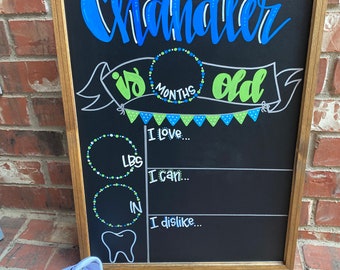 Chandler
is old
MONTHS
I Love...
LBS
I can...
IN
I dislike...